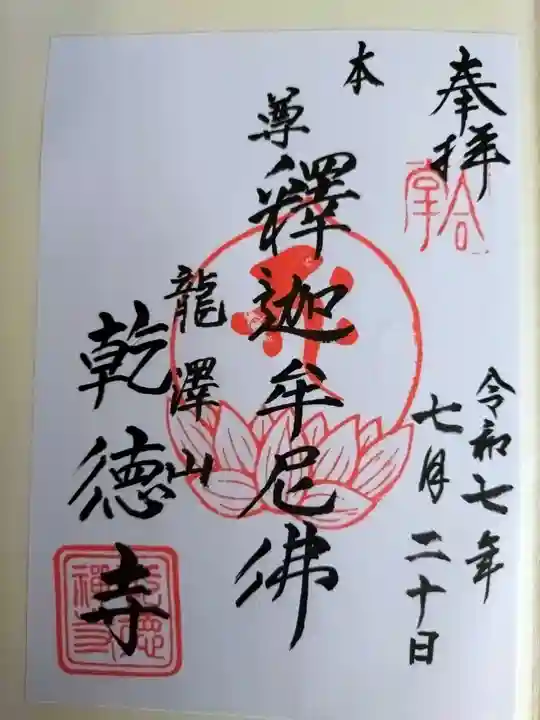 奉拝
合掌
令和七年
七月二十日
本尊
釋迦牟尼佛
龍澤山
乾德寺